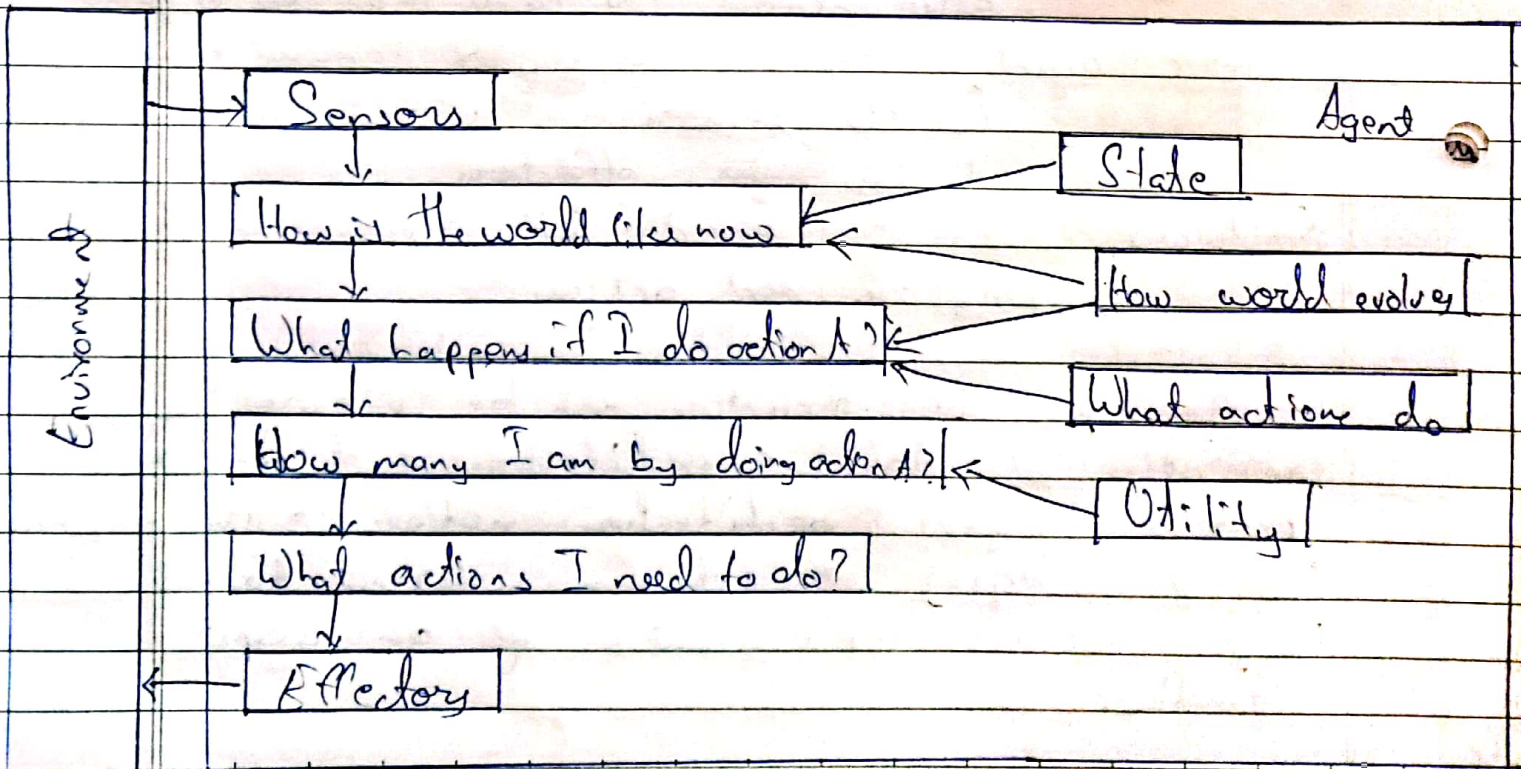 Sensors
Agent
State
How is the world like now
How world evolves
What happens if I do action A?
What actions do
How many I am by doing acton A?
Utility
What actions I need to do?
Effectors
Environment